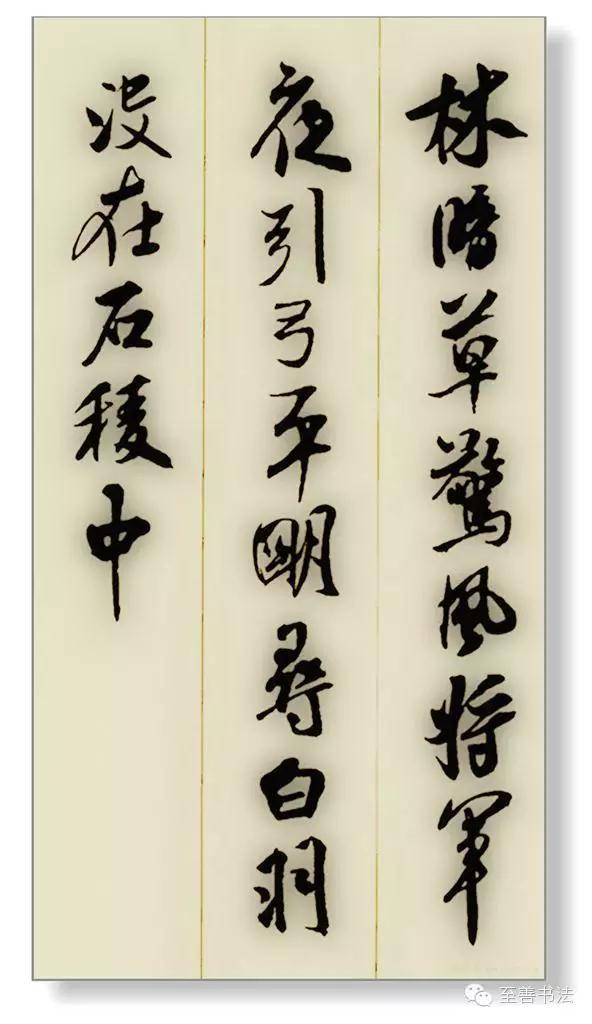 林暗草驚風將軍
夜引弓平明尋白羽
没在石稜中
至善书法